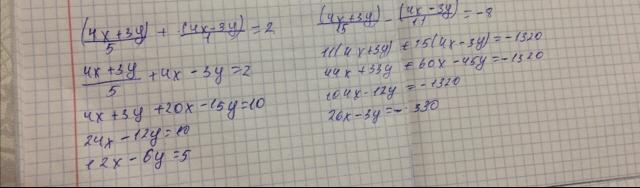 (4x+3y)/5 + (4x-3y)/1 = 2
(4x+3y)/5 + 4x - 3y = 2
4x + 3y + 20x - 15y = 10
24x - 12y = 10
12x - 6y = 5
(4x+3y)/15 - (4x-3y)/11 = -8
11(4x+3y) + 15(4x-3y) = -1320
44x + 33y + 60x - 45y = -1320
104x - 12y = -1320
26x - 3y = -330